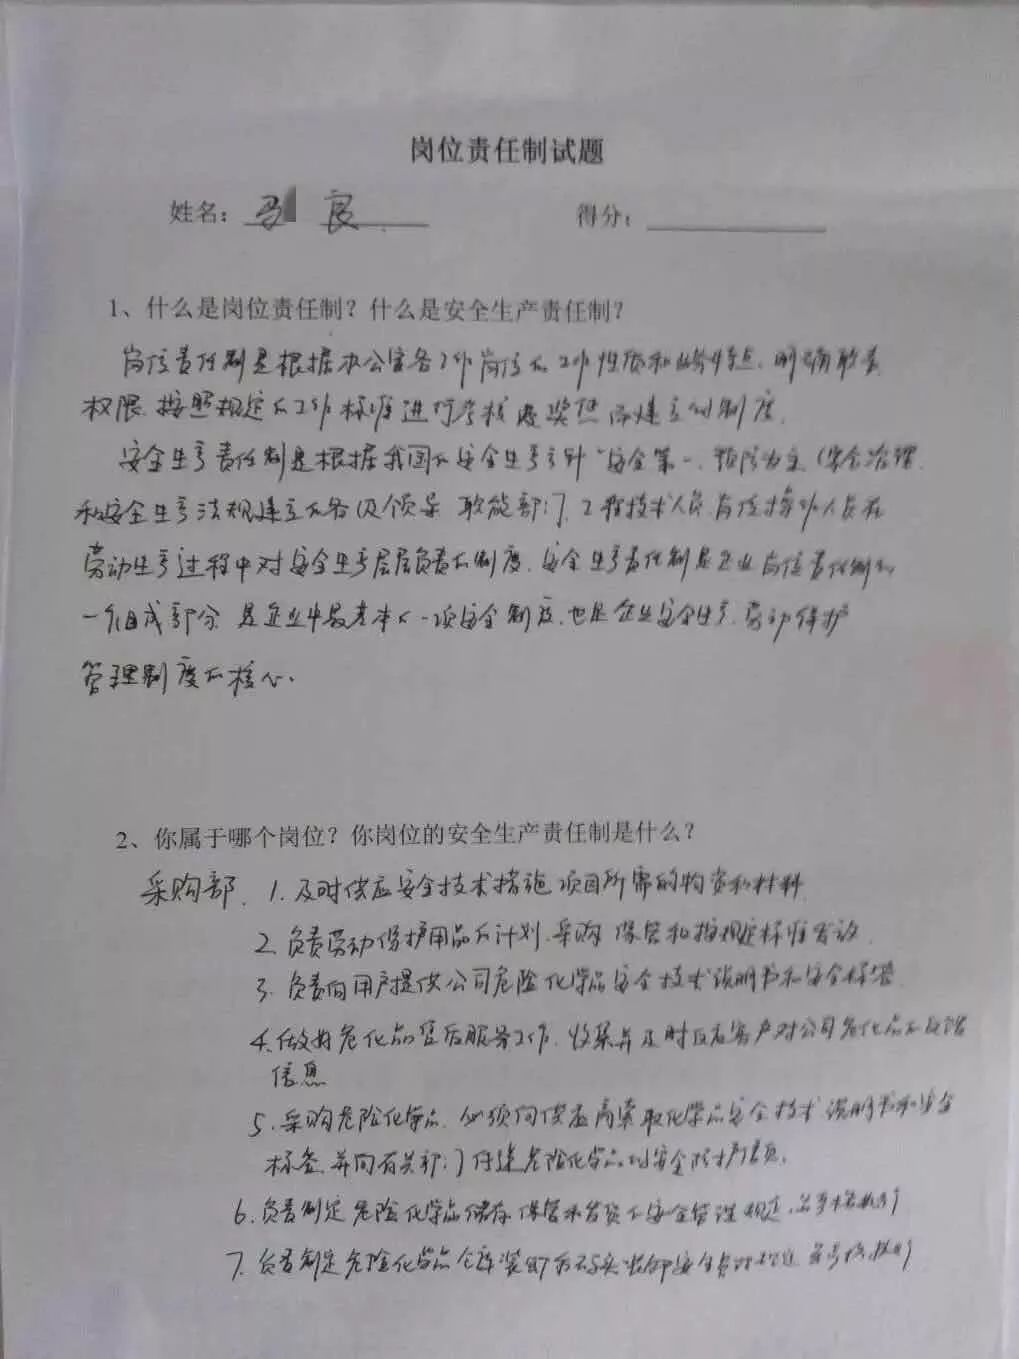 岗位责任制试题
姓名: 马 良 得分:
1、什么是岗位责任制?什么是安全生产责任制?
岗位责任制是根据办公室各工作岗位的工作性质和业务特点,明确职责
权限、按照规定的工作标准进行考核及奖惩而建立的制度。
安全生产责任制是根据我国的安全生产方针"安全第一、预防为主、综合治理
和安全生产法规建立的各级领导 职能部门、工程技术人员、岗位操作人员在
劳动生产过程中对安全生产层层负责的制度。安全生产责任制是企业岗位责任制的
一个组成部分 是企业中最基本的一项安全制度,也是企业安全生产、劳动保护
管理制度的核心。
2、你属于哪个岗位?你岗位的安全生产责任制是什么?
采购部. 1. 及时供应安全技术措施项目所需的物资和材料
2. 负责劳动保护用品的计划、采购 保管和按规定标准发放
3. 负责向用户提供公司危险化学品安全技术说明书和安全标签
4. 做好危化品售后服务工作,收集并及时反应客户对公司危化品的反馈
信息
5. 采购危险化学品,必须向供应商索取化学品安全技术说明书和安全
标签,并向有关部门传递危险化学品的安全防护信息。
6. 负责制定危险化学品储存 保管和发货的安全管理规定,并严格执行
7. 负责制定危险化学品仓库装卸 安全管理规定 并严格执行